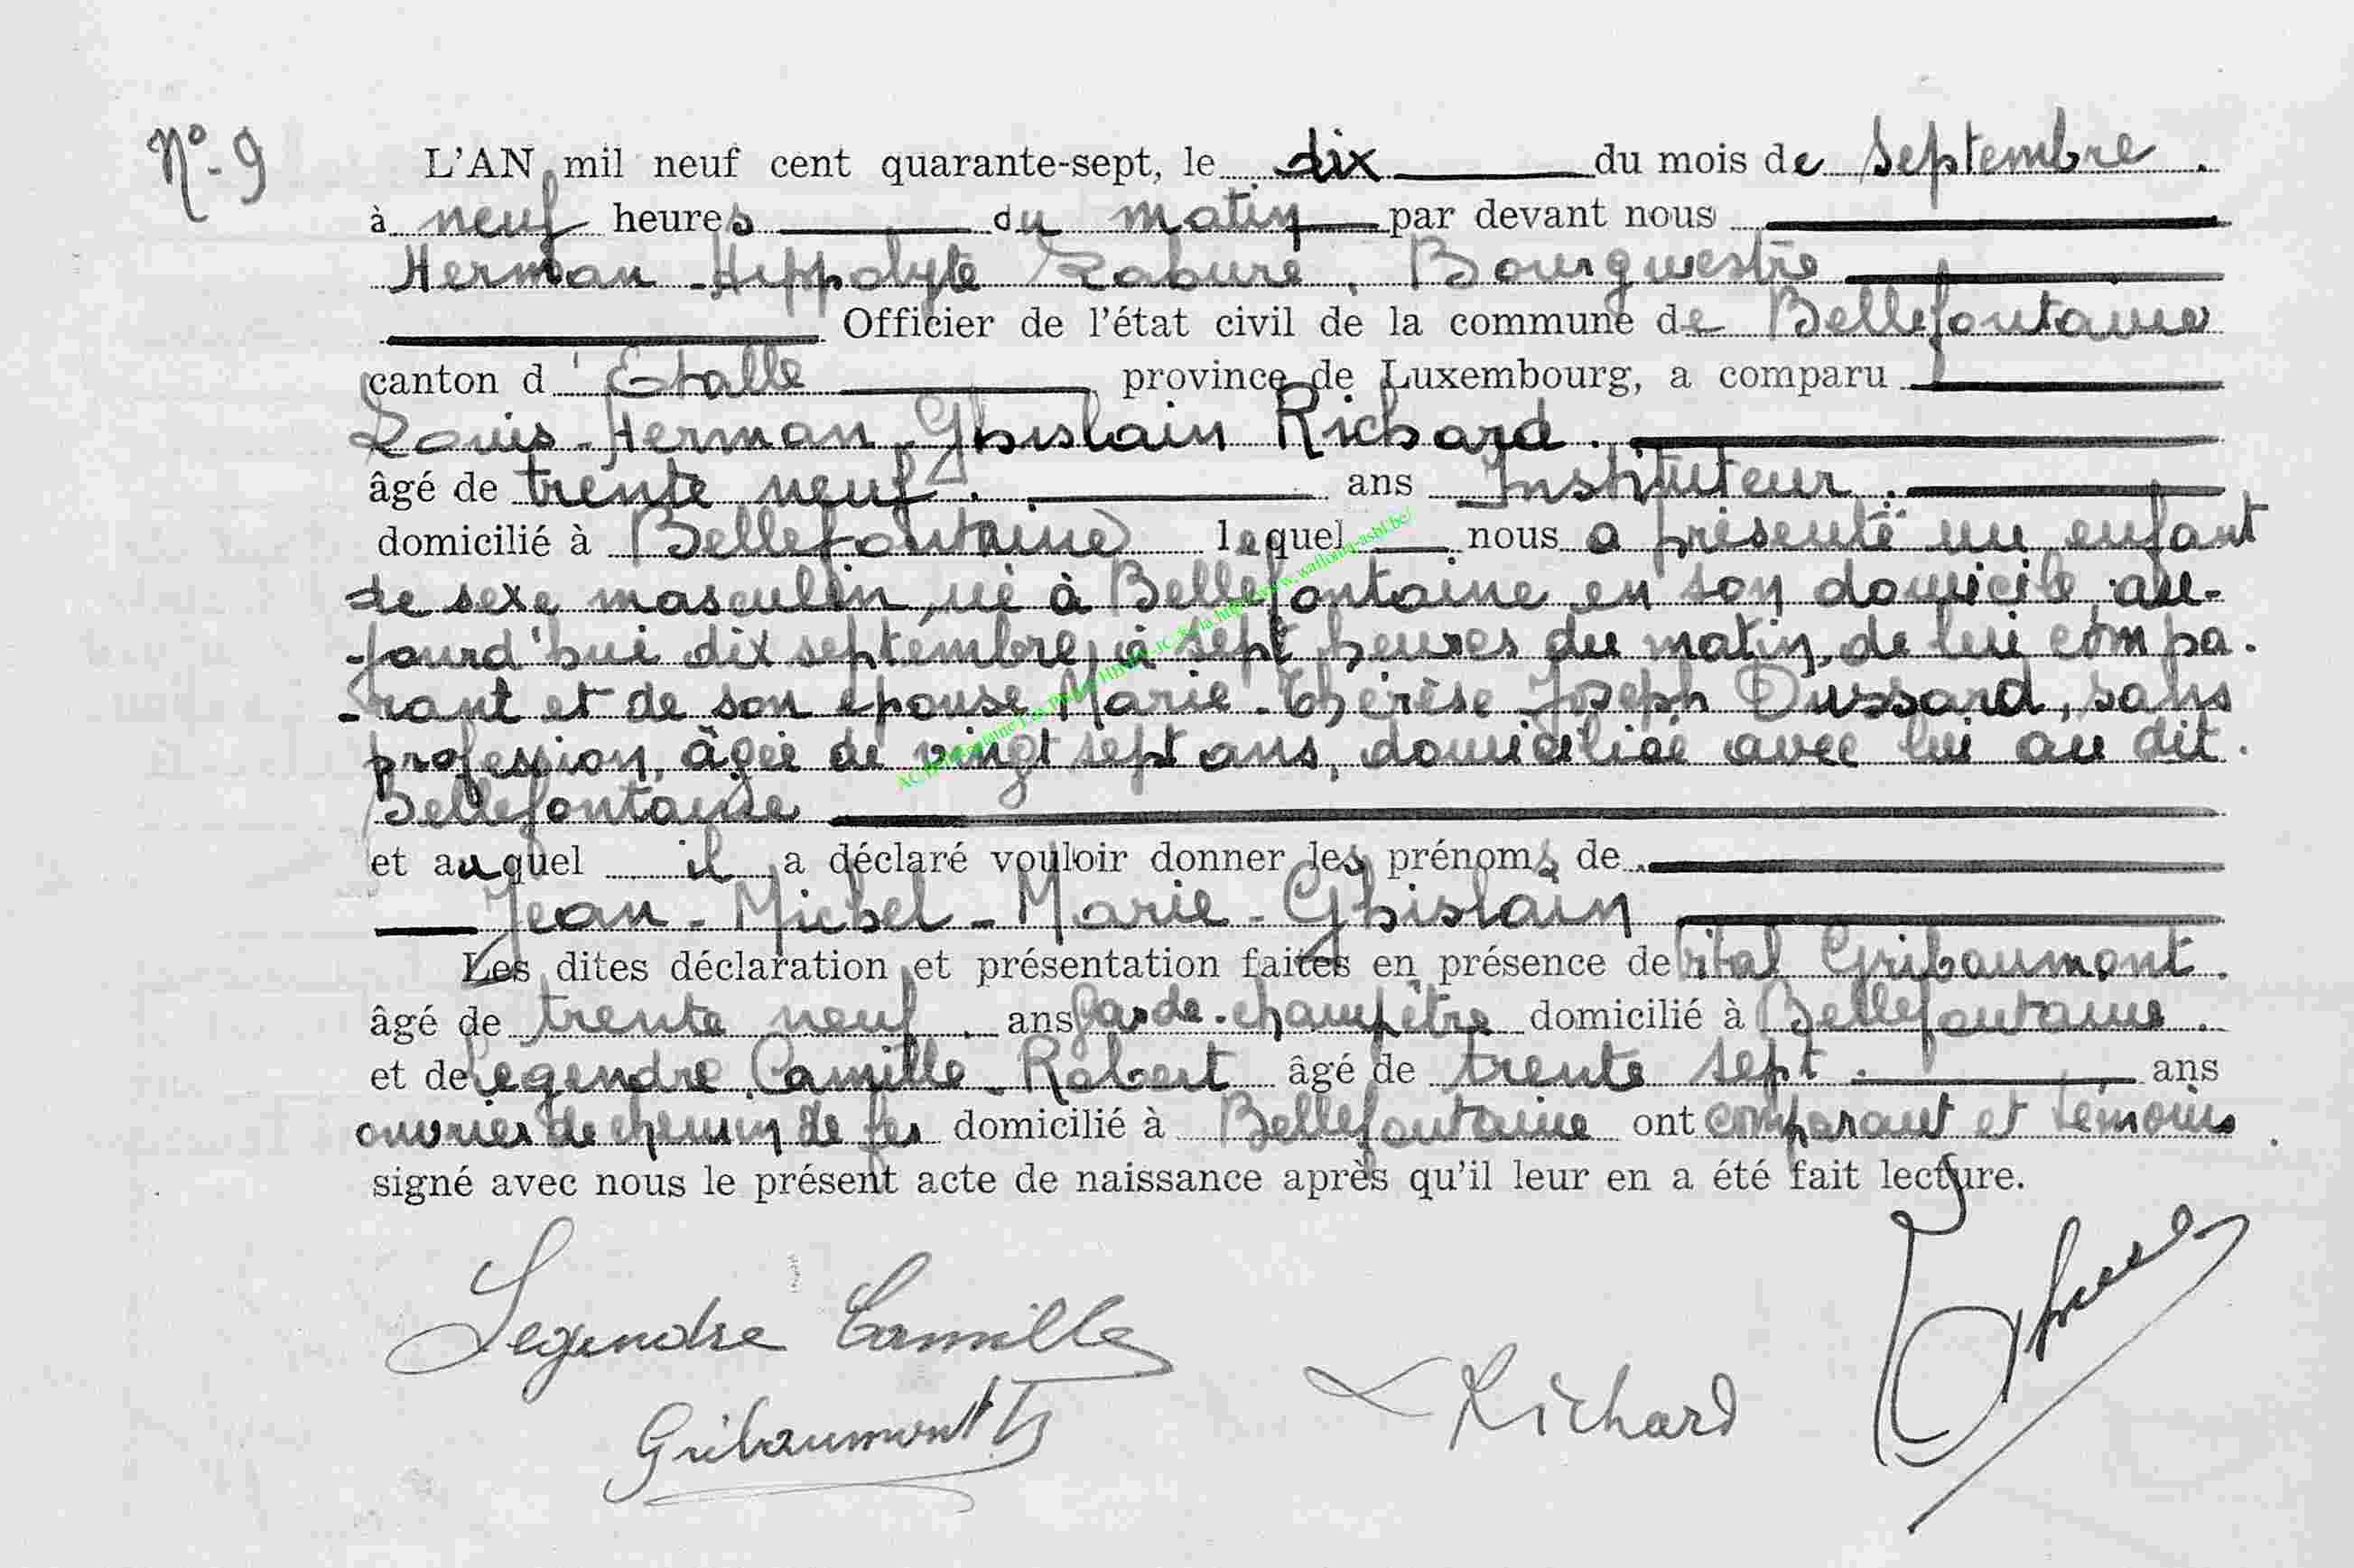 N° 9
L'AN mil neuf cent quarante-sept, le dix du mois de Septembre.
à neuf heures du matin par devant nous
Herman-Hippolyte Labure, Bourgmestre
Officier de l'état civil de la commune de Bellefontaine
canton d'Etalle province de Luxembourg, a comparu
Louis-Herman-Ghislain Richard.
âgé de trente neuf. ans Instituteur.
domicilié à Bellefontaine lequel nous a présenté un enfant
de sexe masculin, né à Bellefontaine en son domicile, au-
-jourd'hui dix septembre, à sept heures du matin, de lui compa-
-rant et de son épouse Marie-Thérèse Joseph Dussard, sans
profession, âgée de vingt sept ans, domiciliée avec lui au dit.
Bellefontaine
et auquel il a déclaré vouloir donner les prénoms de
Jean-Michel-Marie-Ghislain
Les dites déclaration et présentation faites en présence de Vital Gribaumont.
âgé de trente neuf. ans Garde-champêtre domicilié à Bellefontaine.
et de Legendre Camille-Robert âgé de trente sept. ans
ouvrier de chemin de fer domicilié à Bellefontaine ont comparant et témoins
signé avec nous le présent acte de naissance après qu'il leur en a été fait lecture.
Legendre Camille
Gribaumont V
L Richard